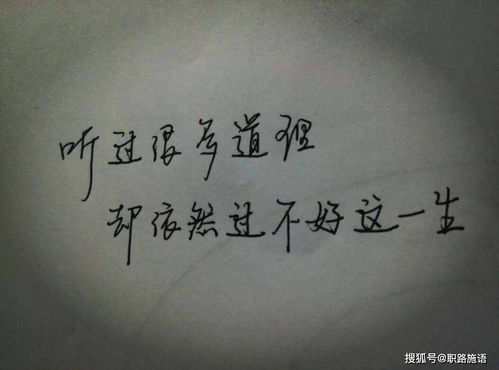 听过很多道理
却依然过不好这一生
搜狐号@职路施语